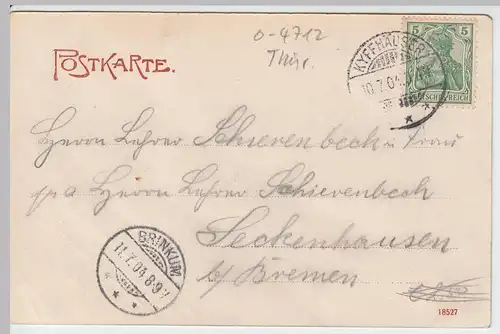 POSTKARTE.
0-4712
Thür.
KYFFHÄUSER
10.7.04
5 5
DEUTSCHES REICH
Herrn Lehrer Schierenbeck u Frau
p a Herrn Lehrer Schierenbeck
Seckenhausen
b/ Bremen
BRINKUM
11.7.04 8-9V
18527